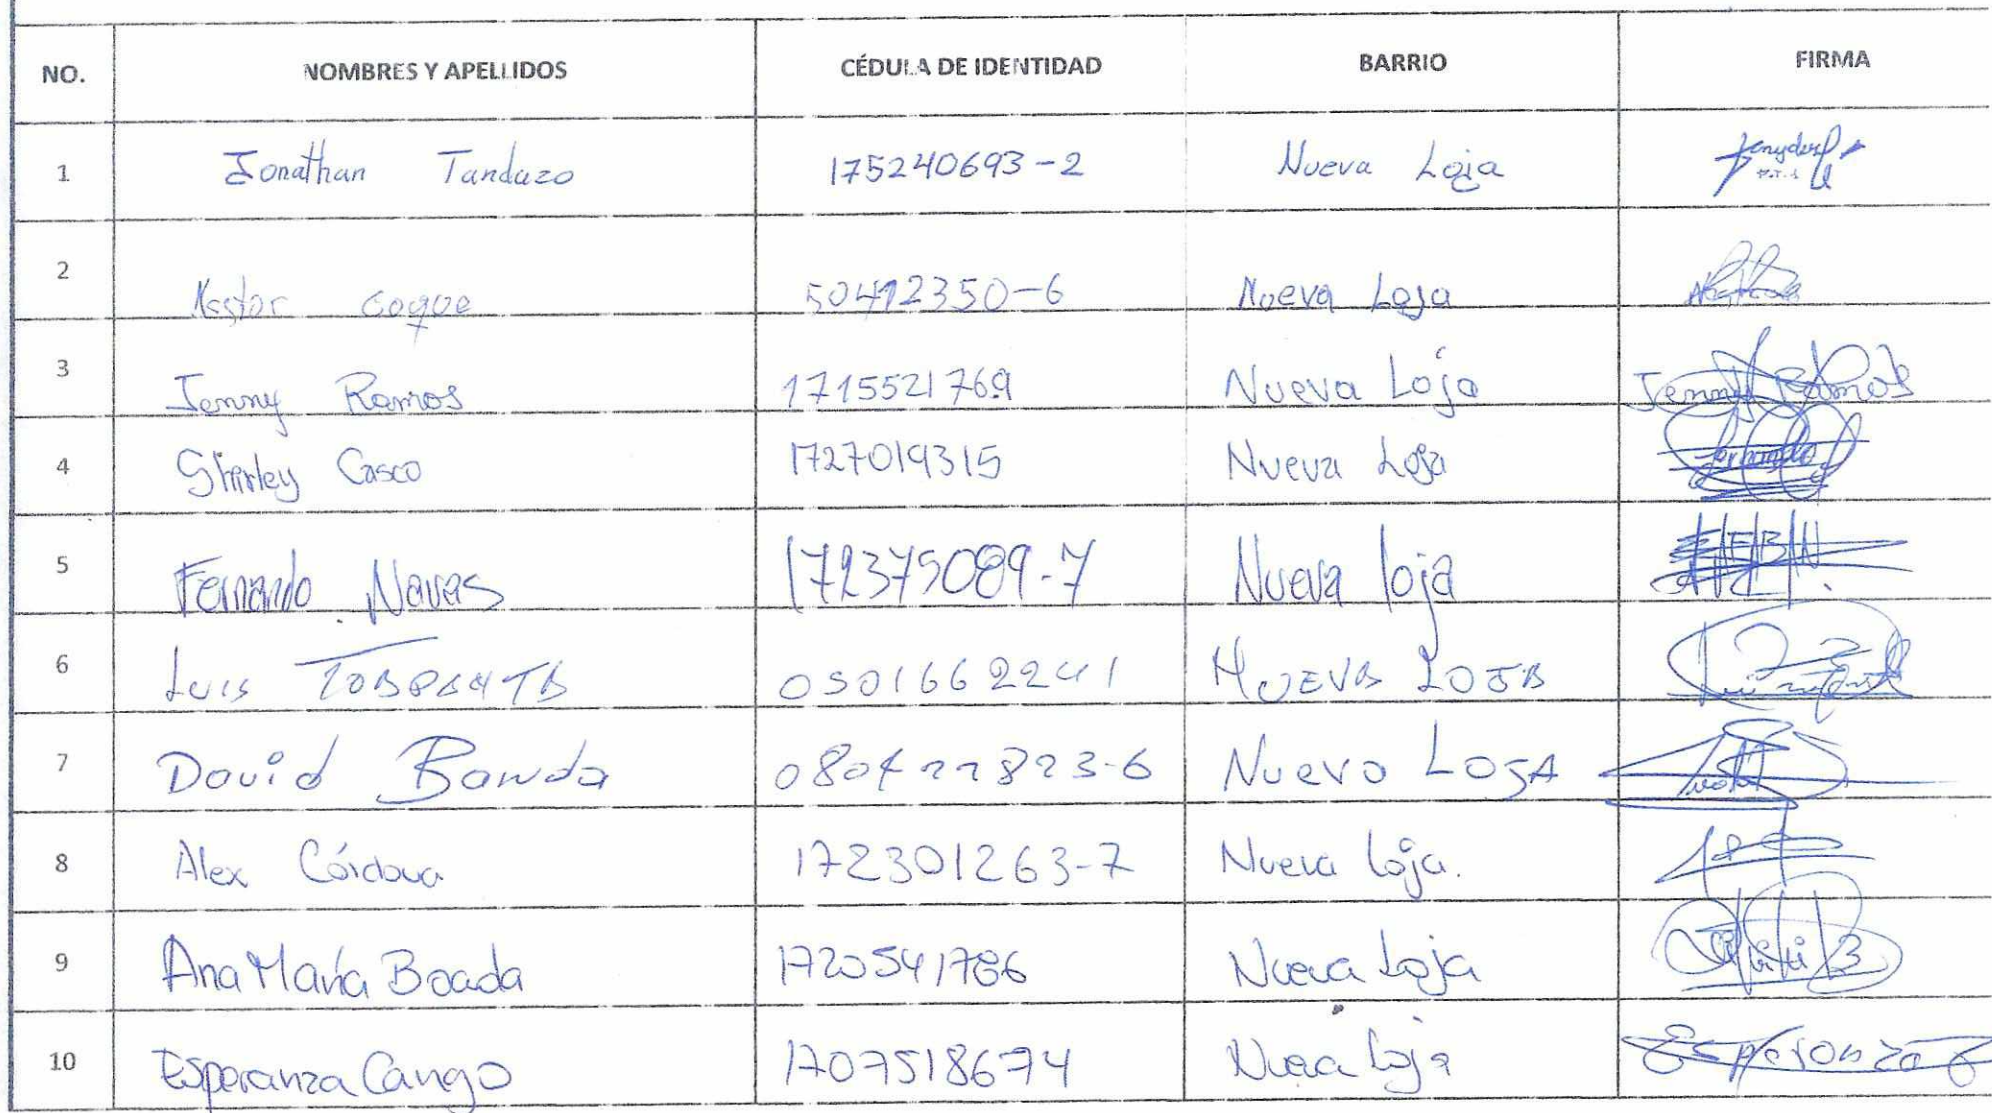 NO. NOMBRES Y APELLIDOS CÉDULA DE IDENTIDAD BARRIO FIRMA
1 Jonathan Tandazo 175240693-2 Nueva Loja
2 Nestor Coque 50412350-6 Nueva Loja
3 Jenny Ramos 1715521769 Nueva Loja Jenny Ramos
4 Shirley Casco 1727019315 Nueva Loja
5 Fernando Navas 172375089-7 Nueva loja
6 Luis 0501662241 NUEVA LOJA
7 David Banda Nuevo LOJA
8 Alex Córdova 172301263-7 Nueva Loja.
9 Ana María Boada 1720541786 Nueva Loja
10 Esperanza Cango 1707518674 Nueva Loja Esperanza